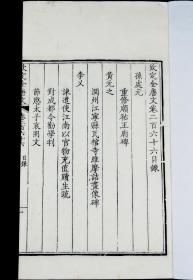 欽定全唐文卷二百六十六目錄
孫處元
重修順祐王廟碑
黃元之
潤州江寧縣瓦棺寺維摩詰畫像碑
李乂
諫遣使江南以官物充直贖生疏
對成都令勸學判
節愍太子哀冊文
欽定全唐文 卷二百六十六 目錄 一